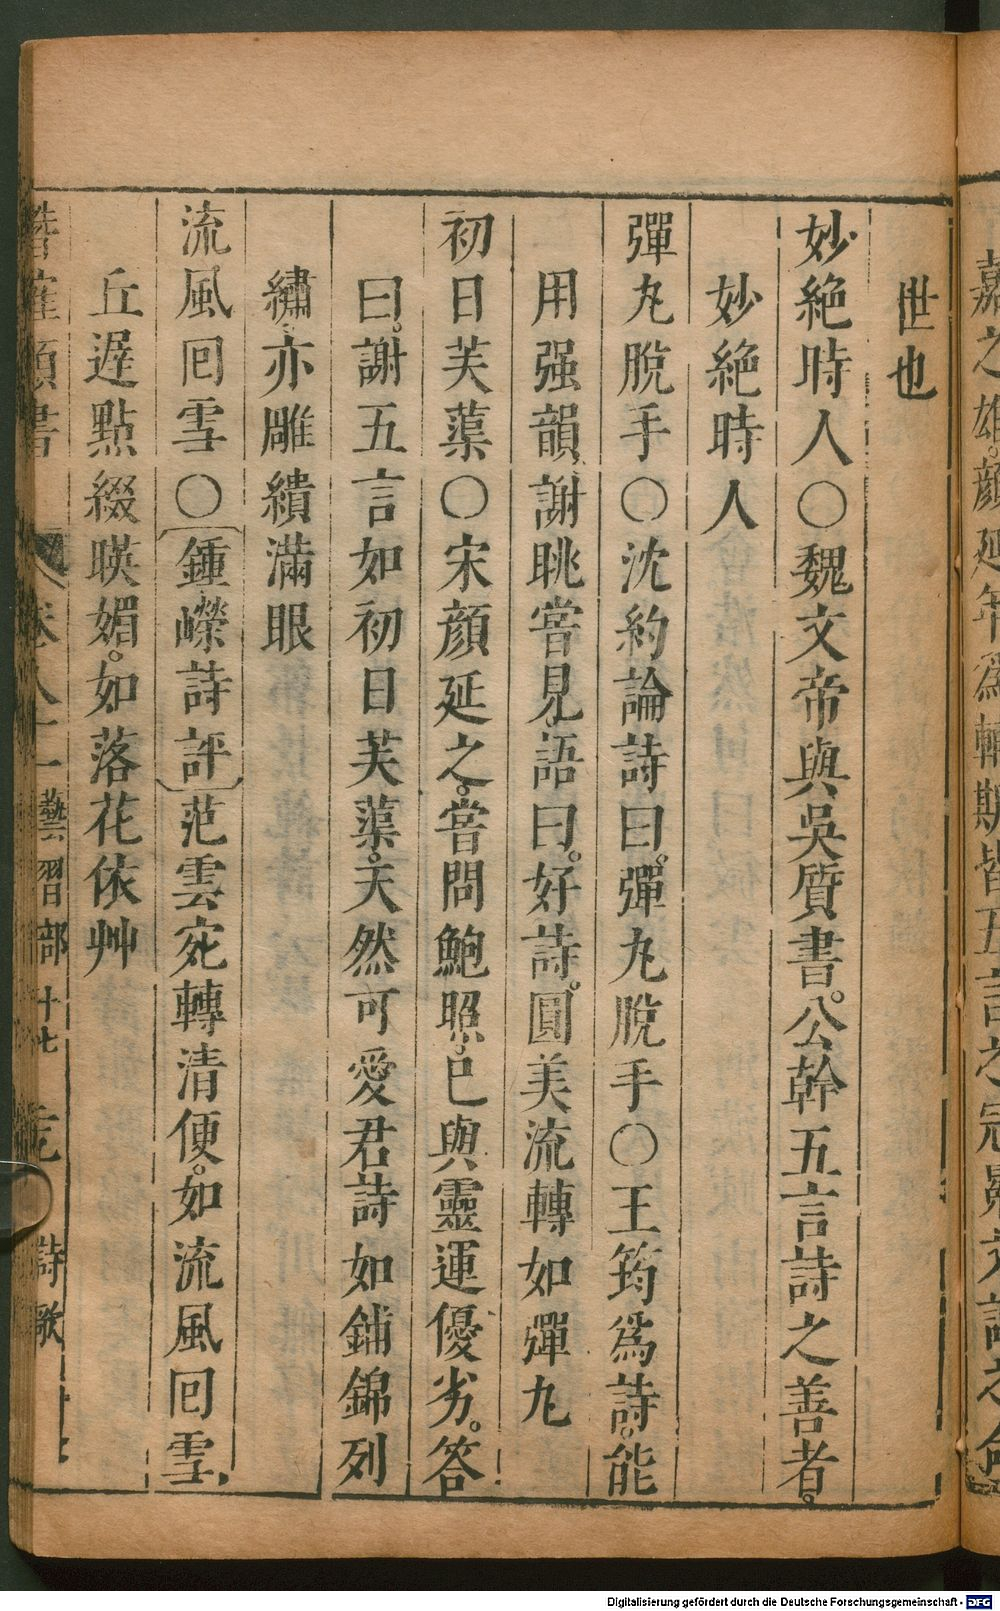 嘉之雄。顏延年爲輔斯皆五言之冠冕文詞之命
世也
妙絶時人○魏文帝與吳質書。公幹五言詩之善者。
妙絶時人
彈丸脫手○沈約論詩曰。彈丸脫手○王筠爲詩。能
用强韻謝眺嘗見語曰。好詩。圓美流轉如彈丸
初日芙蕖○宋顔延之。嘗問鮑照。已與靈運優劣。答
曰。謝五言如初日芙蕖。天然可愛君詩如鋪錦列
繡亦雕繢滿眼
流風囘雪○鍾嶸詩評范雲宛轉清便。如流風囘雪
丘遲點綴暎媚。如落花依艸
潛確類書 卷八十一 藝習部十七 詩歌
Digitalisierung gefördert durch die Deutsche Forschungsgemeinschaft - DFG